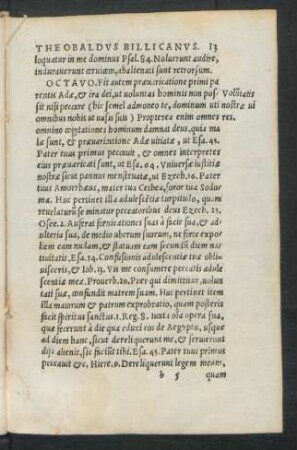 THEOBALDVS BILLICANVS. 13
loquatur in me dominus Psal. 84. Noluerunt audire,
indurauerunt ceruicem, abalienati sunt retrorsum.
OCTAVO. Fit autem præuaricatione primi pa
rentis Adæ, & ira dei, ut uoluntas hominis non pos- Volūtatis
sit nisi peccare (hic semel admoneo te, dominum uti nostræ ui
omnibus nobis ut uasis suis) Propterea enim omnes res,
omnino cogitationes hominum damnat deus, quia ma
læ sunt, & præuaricatione Adæ uitiatæ, ut Esa. 43.
Pater tuus primus peccauit, & omnes interpretes
eius præuaricati sunt, ut Esa. 64. Vniuersæ iustitiæ
nostræ sicut pannus menstruatæ, ut Ezech. 16. Pater
tuus Amorrhæus, mater tua Cethea, soror tua Sodo
ma. Huc pertinet illa adulescētiæ turpitudo, quam
reuelaturū se minatur peccatoribus deus Ezech. 23.
Osee. 2. Auferat fornicationes suas a facie sua, & ad
ulteria sua, de medio uberum suorum, ne forte expo
liem eam nudam, & statuam eam secundū diem na
tiuitatis, Esa. 54. Confusionis adulescentiæ tuæ obli
uisceris, & Iob. 13. Vis me consumere peccatis adule
scentiæ meæ. Prouerb. 29. Puer qui dimittitur, uolun
tati suæ, confundit matrem suam. Huc pertinet item
illa maiorum & patrum exprobratio, quam posteris
fecit spiritus sanctus. 1. Reg. 8. Iuxta oīa opera sua,
quæ fecerunt à die qua eduxi eos de Aegypto, usque
ad diem hanc, sicut dereliquerunt me, & seruierunt
dijs alienis, sic faciūt tibi, Esa. 43. Pater tuus primus
peccauit &c. Hiere. 9. Dereliquerunt legem meam,
b 5 quam